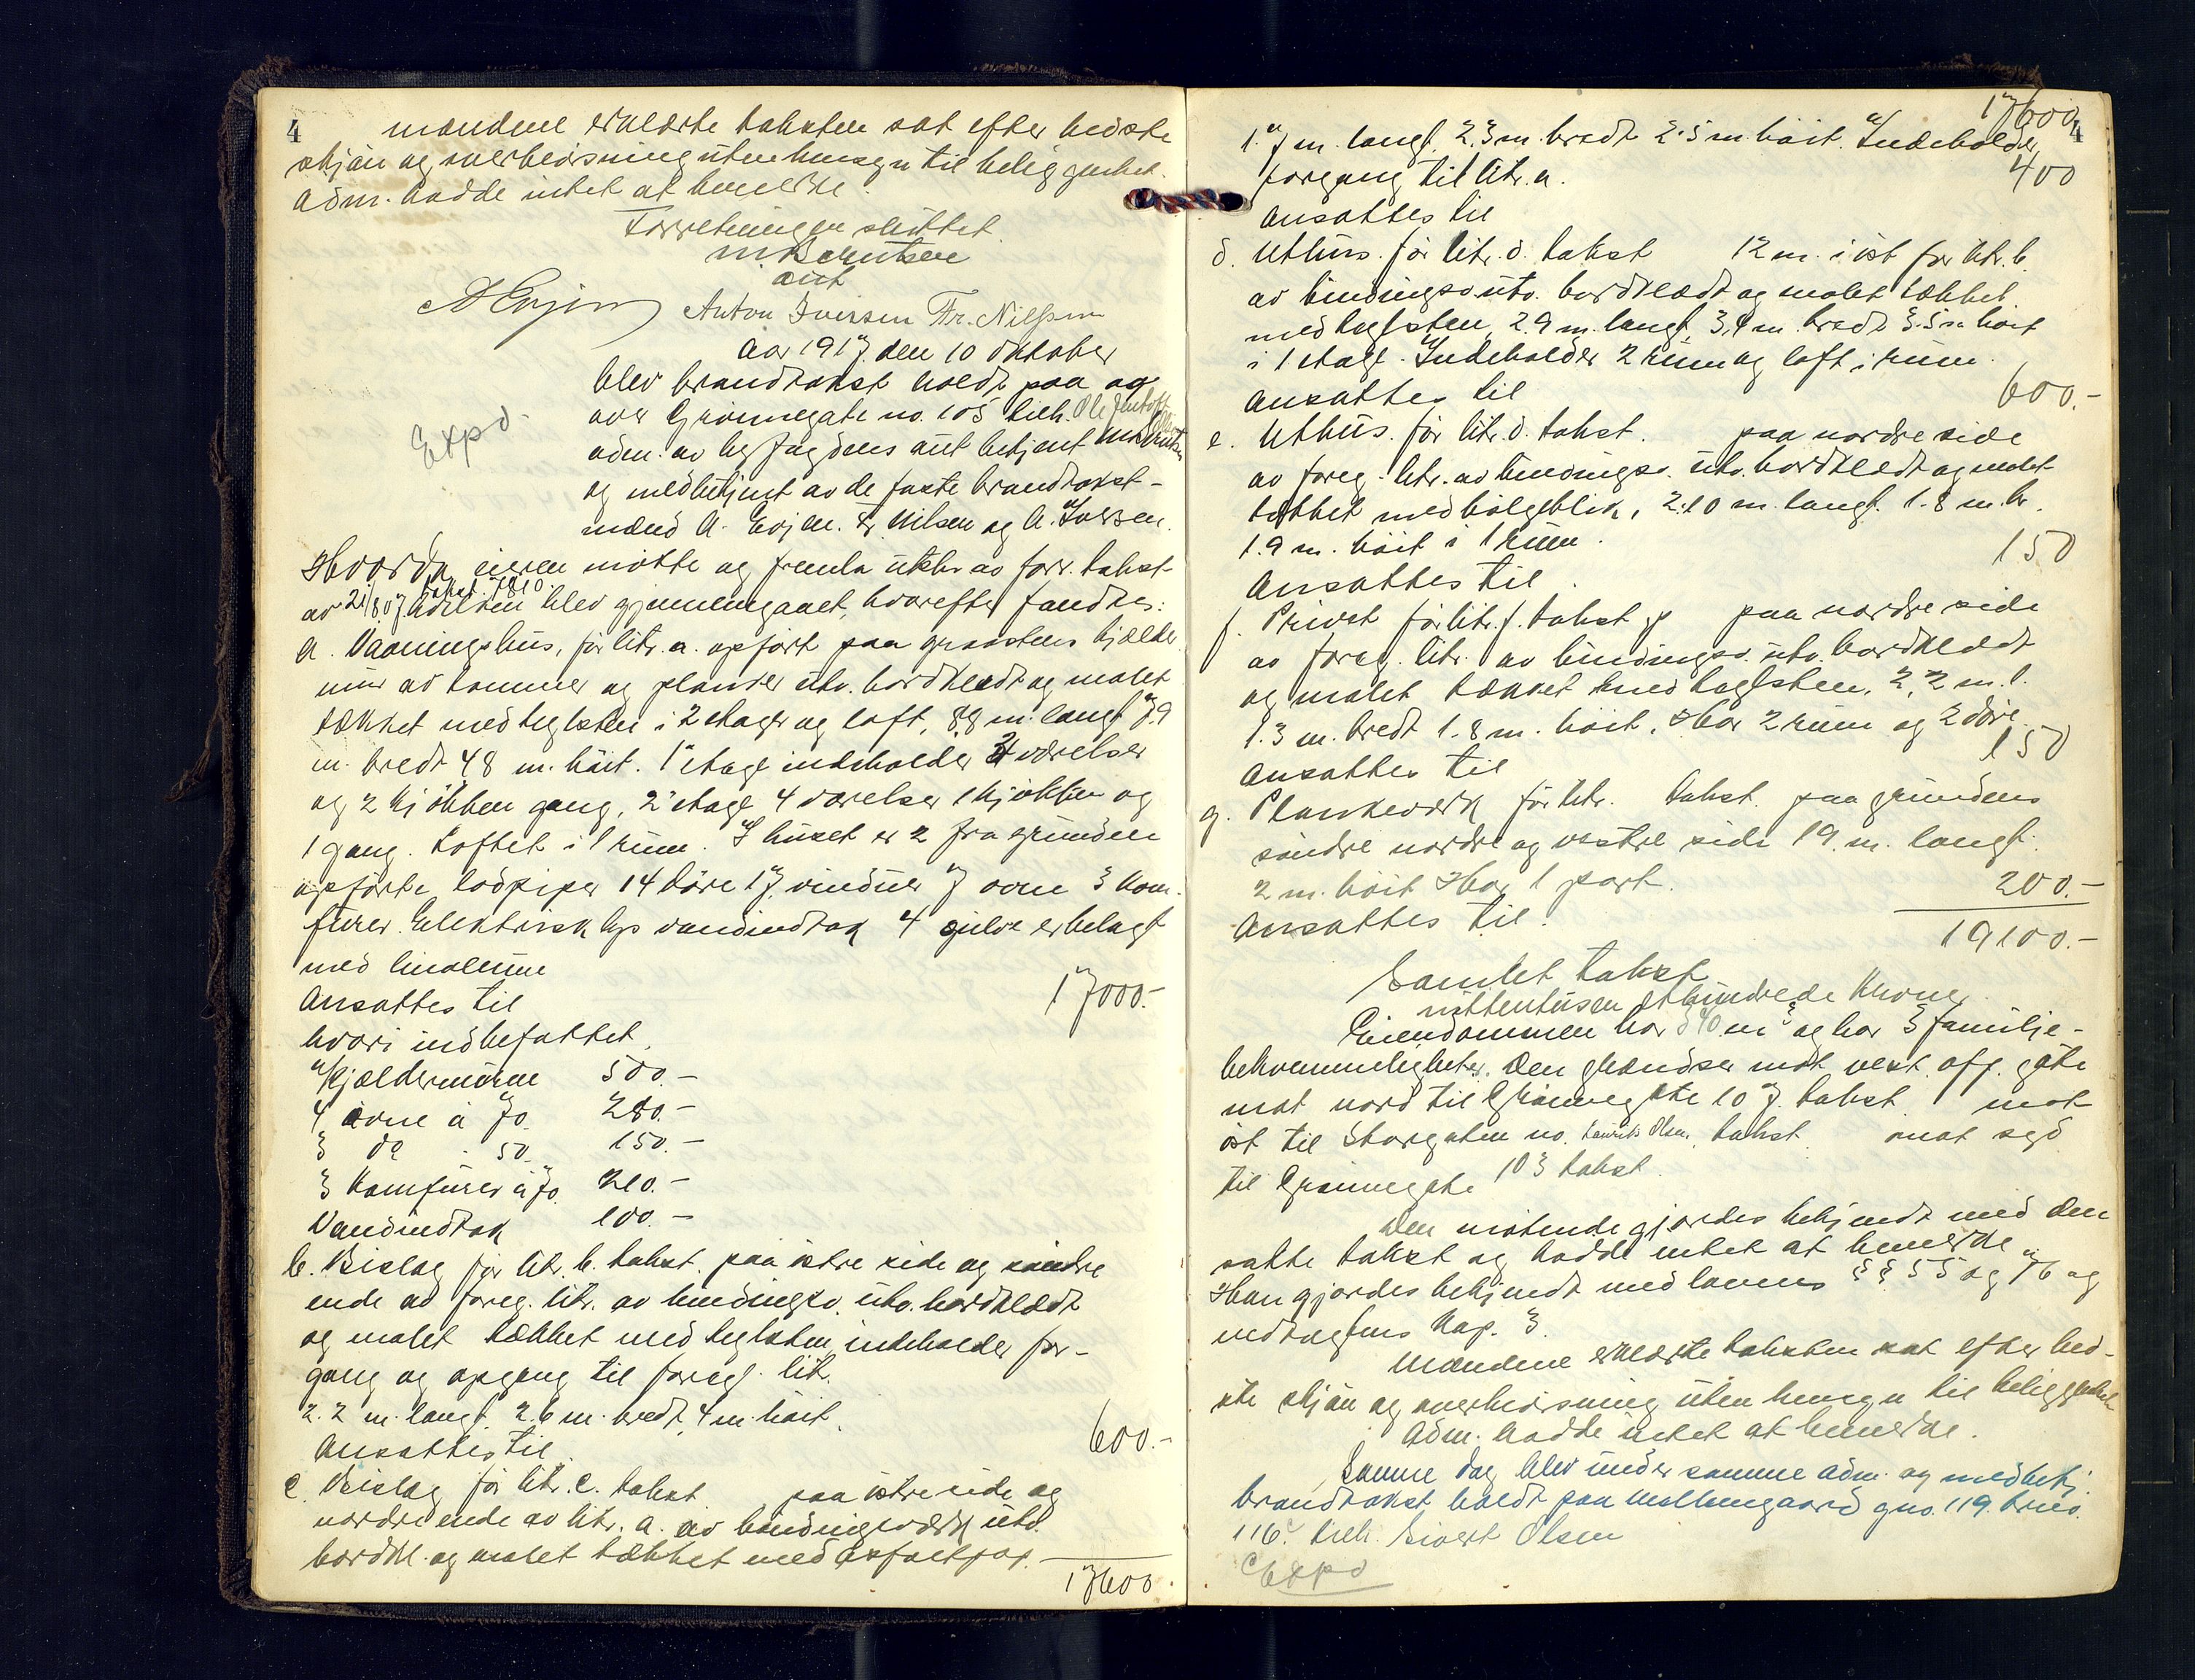 4
mændene erklærte taksten sat efter bedste
skjön og overbevisning uten hensyn til beliggenhet.
Adm. hadde intet at bemerke.
Forretningen sluttet.
M. Berntsen
aut
A Evjen Anton Iversen Fr. Nilssen
Aar 1917 den 10 oktober
blev brandtakst holdt paa og
Expd.
over Grönnegate no. 105 tilh. Ole
adm. av byfogdens aut betjent M. Berntsen
og medbetjent av de faste brandtakst-
mænd A. Evjen. Fr. Nilsen og A. Iversen.
Hvorda eieren mötte og fremla utskr av forr. takst
av 21/8.07 takst. 1810. hvilken blev gjennemgaaet, hvorefter fandtes:
a. Vaaningshus, för litr. a. opfört paa graastens kjælder
mur av tömmer og planker utv. bordklædt og malet
tækket med teglsten i 2 etager og loft, 8.8 m. langt 7.9
m. bredt 4 8 m. höit. 1ste etage indeholder 4 værelser
og 2 kjökken gang, 2den etage 4 værelser 1 kjökken og
1 gang. Loftet i 1 rum. I huset er 2 fra grunden
opförte lodpiper 14 döre 17 vinduer 7 ovne 3 kom-
fürer. Elektrisk lys vandindtak 4 gulve er belagt
med linoleum
Ansattes til 17000.-
hvori indbefattet
Kjældermuren 500.-
4 ovne á 70. 280.-
3 do - 50. 150.-
3 Komfürer á 70. 210.-
Vandindtak 100.-
b. Bislag för litr. b. takst. paa östre side og söndre
ende av foreg. litr. av bindingsv. utv. bordklædt
og malet tækket med teglsten indeholder for-
gang og opgang til foreg. litr.
2.2 m. langt. 2.6 m. bredt, 4 m. höit.
Ansattes til 600.-
c. Bislag för litr. c. takst. paa östre side og
nordre ende av litr. a. av bindingsværk utv.
bordkl. og malet tækket med asfaltpap.
17600.
17600.
4
1.7 m. langt. 2.3 m. bredt 2.5 m. höit. Indeholder
forgang til litr. a. 400
Ansattes til
d. Uthus. för litr. d. takst 12 m. i öst for litr. b.
av bindingsv. utv. bordklædt og malet tækket.
med teglsten, 2.9 m. langt, 3,4 m. bredt 3.5 m höit
i 1 etage. Indeholder 2 rum og loft i rum.
Ansattes til 600.-
e. Uthus. för litr. d. takst. paa nordre side
av foreg. litr. av bindingsv. utv. bordklædt og malet
tækket med bölgeblik, 2.10 m. langt. 1.8 m. br.
1.9 m. höit i 1 rum.
Ansattes til 150
f. Privet för litr. f. takst paa nordre side
av foreg. litr. av bindingsv. utv. bordklædt
og malet tækket med teglsten, 2,2 m. l.
1.3 m. bredt 1.8 m. höit. Har 2 rum og 2 döre.
Ansattes til 150
g. Plankeværk för litr. takst. paa grundens
söndre nordre og vestre side 19. m. langt.
2 m. höit Har 1 port.
Ansattes til. 200.-
19100.-
Samlet takst
nittentusen ethundrede Kroner.
Eiendommen har m² og har 3 familje-
bekvemmeligheter. Den grændser mot vest. off. gate
mot nord til Grönnegate 107. takst. mot
öst til Storgaten no. Henriks Olsen. takst. mot syd
til Grönnegate 103 takst.
Den mötende gjordes bekjendt med den
satte takst og hadde intet at bemerke
Han gjordes bekjendt med lovens §§ 55 og 76 og
vedtægtens Kap. 3.
Mændene erklærte taksten sat efter bed-
ste skjön og overbevisning uten hensyn til beliggenhet
Adm. hadde intet at bemerke.
Samme dag blev under samme adm. og medbetj.
brandtakst holdt paa Mellemgaard gno. 119 brno.
116. tilh. Sivert Olsen
Expd